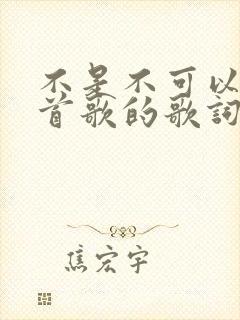 不是不可以
首歌的歌詞
焦宏宇